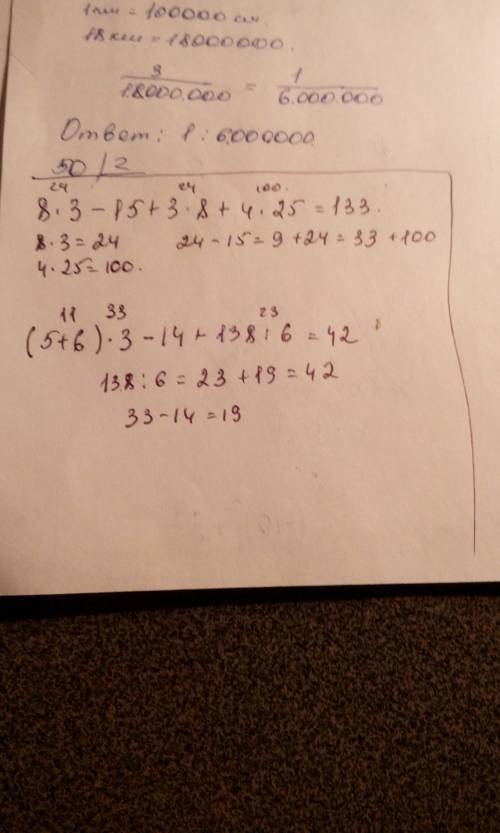 1км = 100000 см.
18 км = 18000000.
3/18000.000 = 1/6.000.000
Ответ: 1 : 6.000000
50 / 2
24 24 100.
8·3 - 15 + 3·8 + 4·25 = 133.
8·3 = 24 24 - 15 = 9 + 24 = 33 + 100
4·25 = 100.
11 33 23
(5+6)·3 - 14 + 138 : 6 = 42
138 : 6 = 23 + 19 = 42
33 - 14 = 19